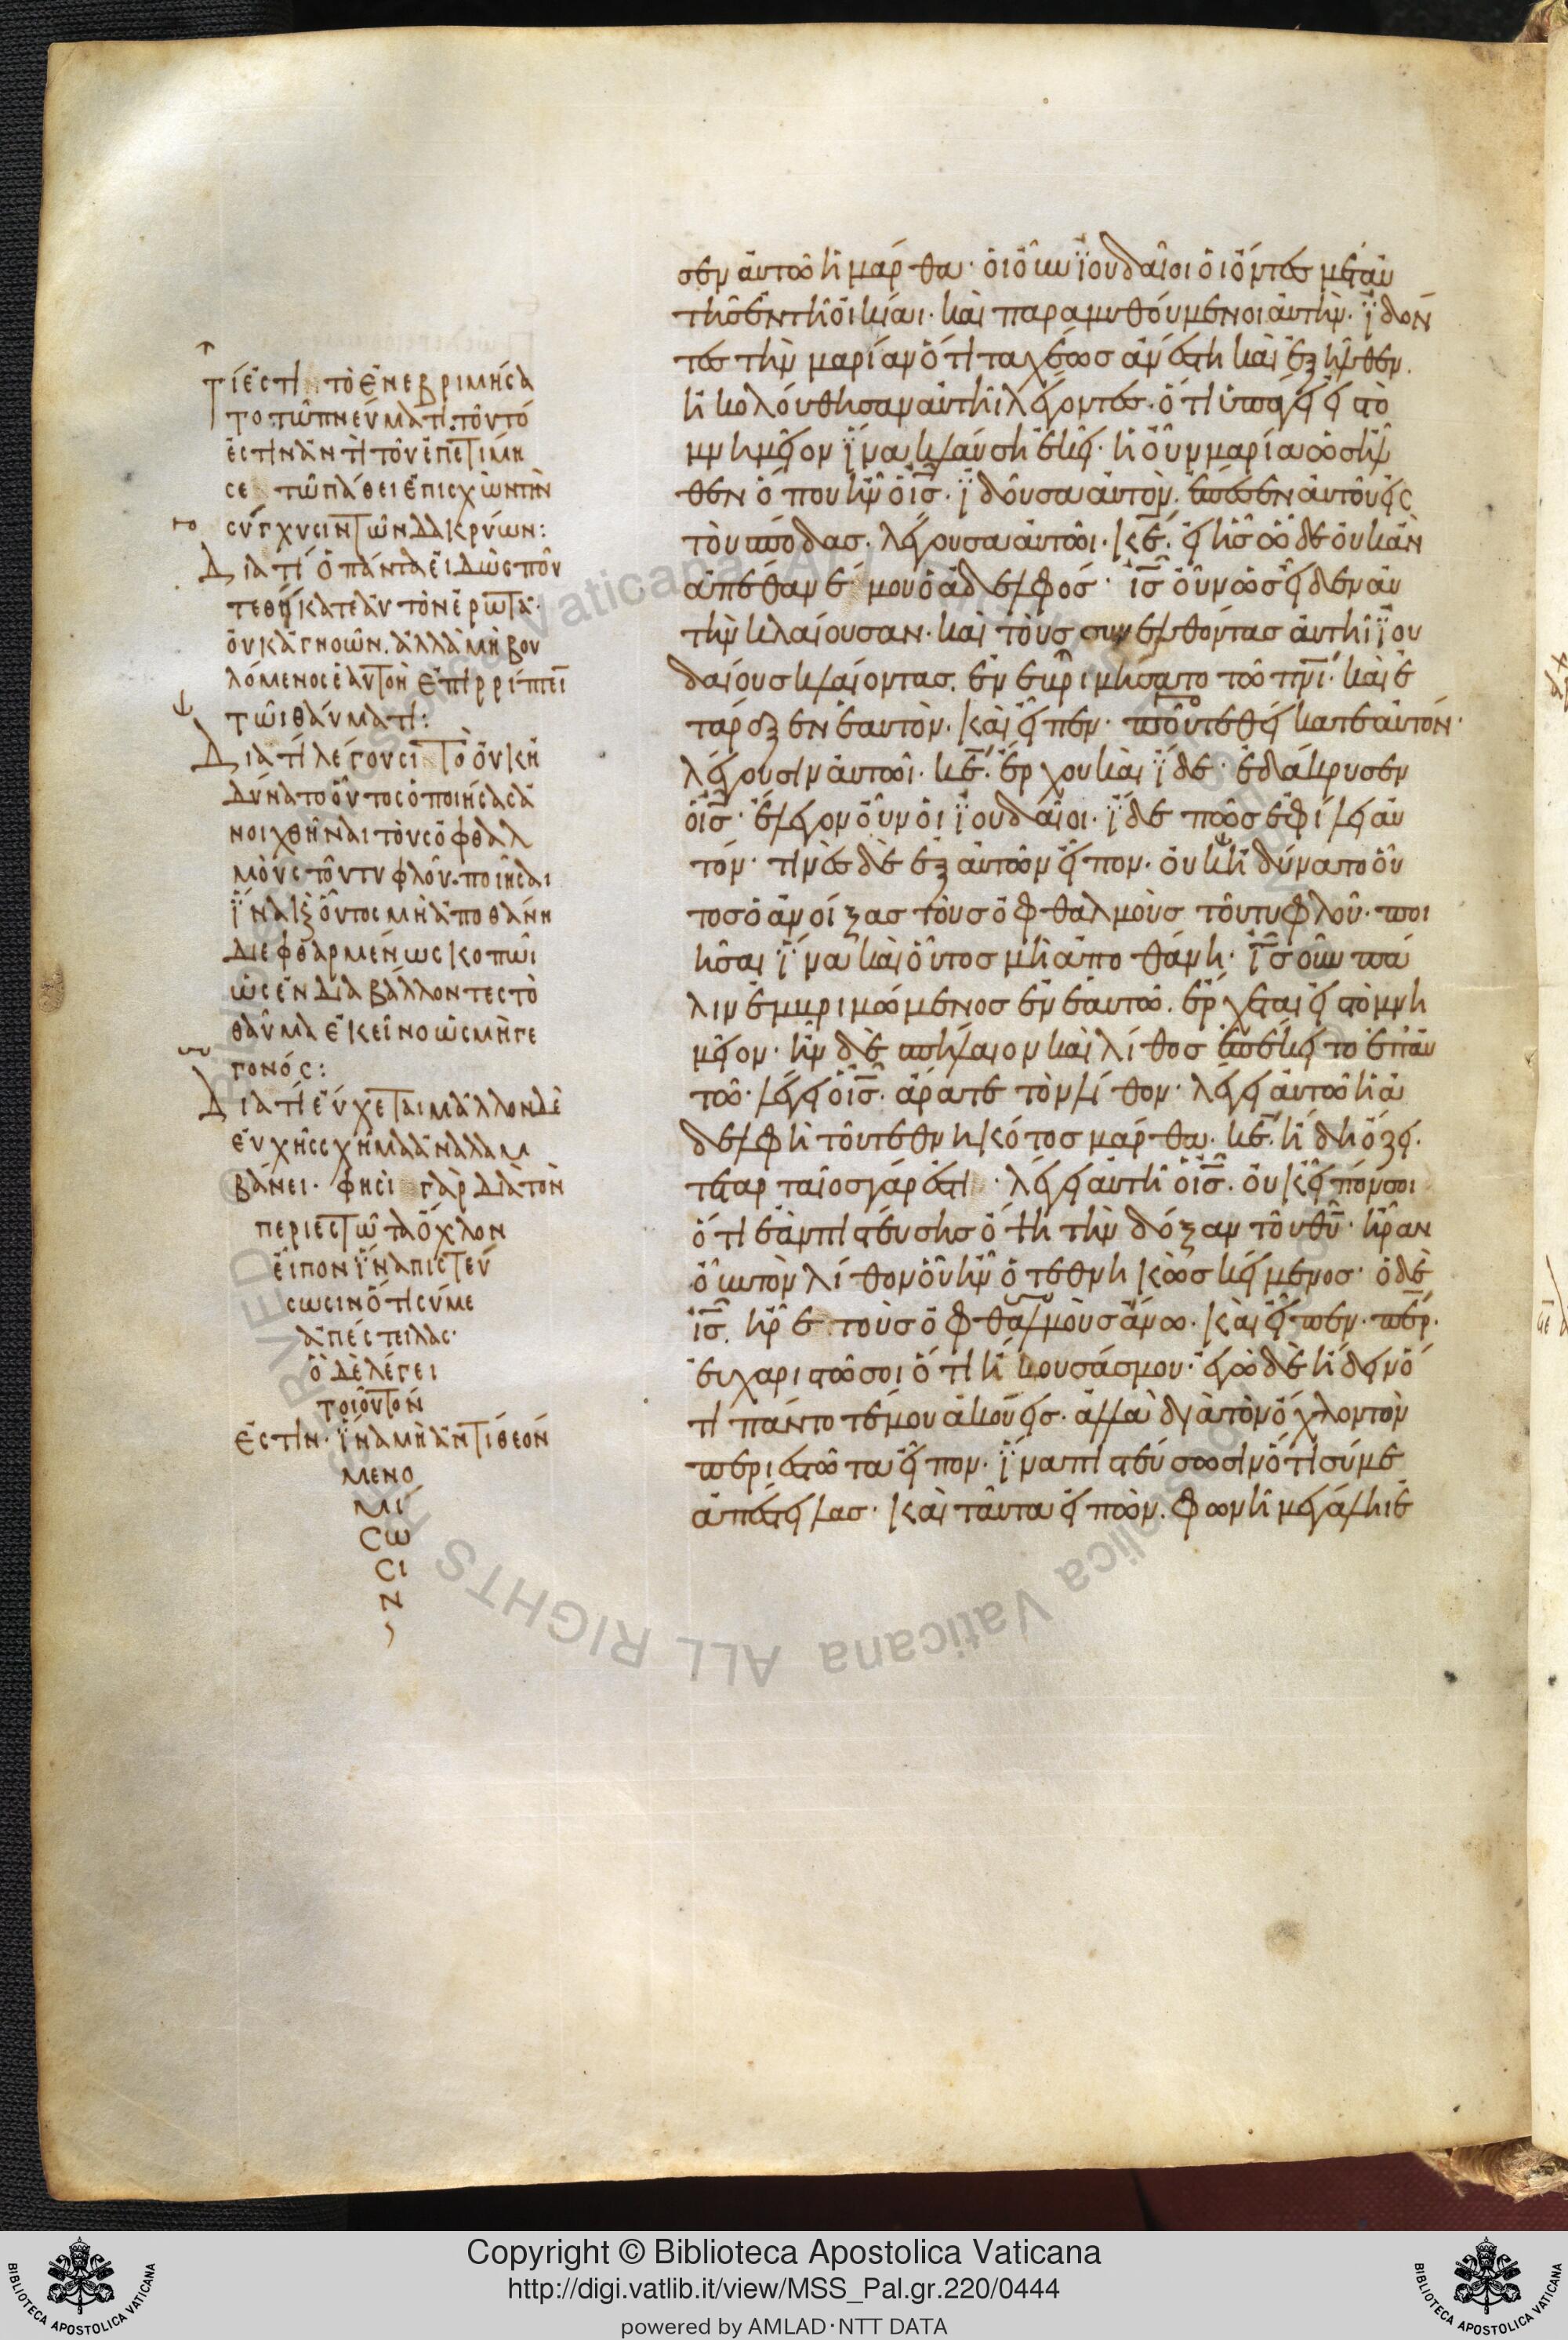 σεν αὐτῶ ἡ μάρθα· ὁι ὂυν ϊουδαῖοι ὁι ὄντες μετ αὐ
τῆς ἐν τῆ ὀικίαι· καὶ παραμυθούμενοι ἀυτήν· ϊδόν
τες τὴν μαρίαν ὅτι ταχέως ἀνέστη καὶ ἐξῆλθεν.
ἠκολούθησαν ἀυτῆ λέγοντες· ὅτι ὑπάγει εἰς τὸ
μνημεῖον ϊνα κλαύση ἐκεῖ· ἡ ὂυν μαρία ὡς ἦλ
θεν ὅπου ἦν ὁ ι̅ς̅· ϊδοῦσα ἀυτὸν. ἔπεσεν ἀυτοῦ εἰς
τοὺ πόδας· λέγουσα ἀυτῶι· κ̅ε̅· εἰ ἦς ὧδε ὀυκ ἂν
ἀπέθανέ μου ὁ ἀδελφός· ι̅ς̅ ὂυν ὡς εἶδεν ἀυ
τὴν κλαίουσαν· καὶ τοὺς συνελθόντας ἀυτῆ ϊου
δαίους κλαίοντας. ἐνεβριμήσατο τῶ π̅ν̅ι̅· καὶ ἐ
τάραξεν ἑαυτὸν· καὶ εἶπεν· ποῦ τεθείκατε ἀυτόν·
λέγουσιν ἀυτῶι· κ̅ε̅· ἔρχου καὶ ϊδε· ἐδάκρυσεν
ὁ ι̅ς̅· ἔλεγον ὂυν ὁι ϊουδαῖοι· ϊδε πῶς ἐφίλει ἀυ
τόν· τινὲς δὲ ἐξ ἀυτῶν εἶπον· ὀυκ ἠδύνατο ὂυ
τος ὁ ἀνοίξας τοὺς ὀφθαλμοὺς τοῦ τυφλοῦ· ποι
ῆσαι ϊνα καὶ ὂυτος μὴ ἀποθάνη· ι̅ς̅ ὂυν πά
λιν ἐμβριμώμενος ἐν ἑαυτῶ· ἔρχεται εἰς τὸ μνη
μεῖον· ἦν δὲ σπήλαιον καὶ λίθος ἐπέκειτο ἐπ ἀυ
τῶ· λέγει ὁ ι̅ς̅· ἄρατε τὸν λίθον· λέγει ἀυτῶ ἡ ἀ
δελφὴ τοῦ τεθνηκότος μάρθα· κ̅ε̅· ἤδη ὄζει·
τεταρταῖος γάρ ἐστι· λέγει ἀυτῆ ὁ ι̅ς̅· ὀυκ εἶπόν σοι
ὅτι ἐὰν πιστεύσης ὄψη τὴν δόξαν τοῦ θ̅υ̅· ἦραν
ὂυν τὸν λίθον ὂυ ἦν ὁ τεθνηκὼς κείμενος· ὁ δὲ
ι̅ς̅ ἦρε τοὺς ὀφθαλμοὺς ἄνω· καὶ εἶπεν· π̅ε̅ρ̅·
ἐυχαριστῶ σοι ὅτι ἤκουσάς μου· ἐγὼ δὲ ἤδειν ὅ
τι πάντοτέ μου ἀκούεις· ἀλλὰ διὰ τὸν ὄχλον τὸν
περιεστῶτα εἶπον· ϊνα πιστεύσωσιν ὅτι σύ με
ἀπέστειλας· καὶ ταῦτα εἰπὼν· φωνῆ μεγάλη ἐ
Τί ἐστι τὸ ἐνεβριμήσα
το τῶ πνεύματι· τοῦτό
ἐστιν ἀντὶ τοῦ ἐπετίμη
σε τῶ πάθει ἐπισχὼν τὴν
σύγχυσιν τῶν δακρύων:
Διατί ὁ πάντα εἰδὼς ποῦ
τεθήκατε ἀυτὸν ἐρωτᾶ·
ὀυκ ἀγνοῶν. ἀλλὰ μὴ βου
λόμενος ἑαυτὸν ἐπιρρίπτει
τῶι θαύματι:
Διατί λέγουσι τὸ ὀυκ ἠ
δύνατο ὂυτος ὁ ποιήσας ἀ
νοιχθῆναι τοὺς ὀφθαλ
μοὺς τοῦ τυφλοῦ· ποιῆσαι
ϊνα κ ὂυτος μὴ ἀποθάνη
διεφθαρμένως κοπῶι
ὡς ἐνδιαβάλλοντες τὸ
θαῦμα ἐκεῖνο ὡς μὴ γε
γονός:
Διατί ἐύχεται μᾶλλον δὲ
ἐυχῆς σχῆμα ἀναλαμ
βάνει· φησὶ γὰρ διὰ τὸν
περιεστῶτα ὄχλον
εἶπον ϊνα πιστεύ
σωσιν ὅτι σύ με
ἀπέστειλας·
ὃ δὲ λέγει
τοιοῦτόν
ἐστιν· ϊνα μὴ ἀντίθεόν
με νο
μί
σω
σι
ν
Copyright © Biblioteca Apostolica Vaticana
http://digi.vatlib.it/view/MSS_Pal.gr.220/0444
powered by AMLAD·NTT DATA
BIBLIOTECA APOSTOLICA VATICANA
BIBLIOTECA APOSTOLICA VATICANA